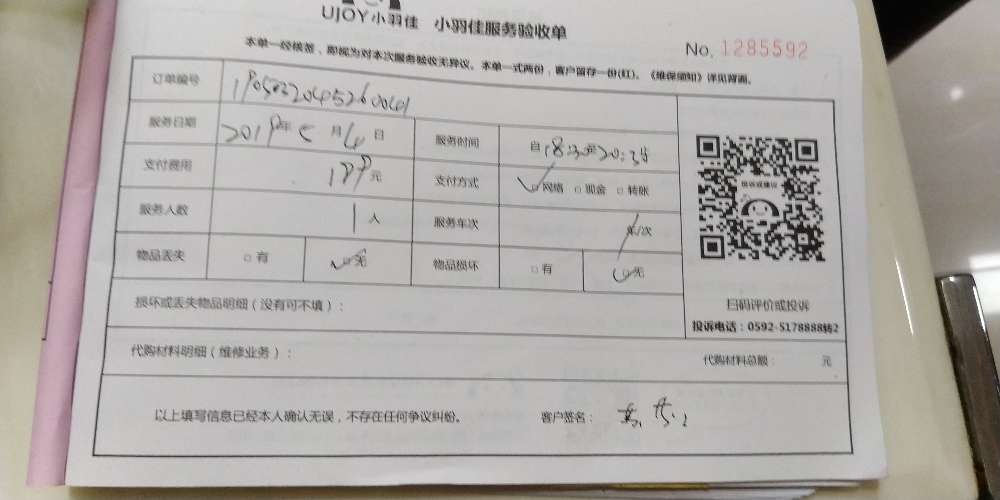 UJOY小羽佳 小羽佳服务验收单
No. 1285592
本单一经核签，即视为对本次服务验收无异议。本单一式两份，客户留存一份(红)。《维保须知》详见背面。
订单编号
服务日期 2019年5月4日 服务时间 自18:30至20:35
支付费用 199元 支付方式 ✓网络 □现金 □转账
服务人数 1人 服务车次 车/次
物品丢失 □有 ✓无 物品损坏 □有 ✓无
投诉或建议
扫码评价或投诉
投诉电话：0592-5178888转2
损坏或丢失物品明细（没有可不填）：
代购材料明细（维修业务）： 代购材料总额： 元
以上填写信息已经本人确认无误，不存在任何争议纠纷。 客户签名：